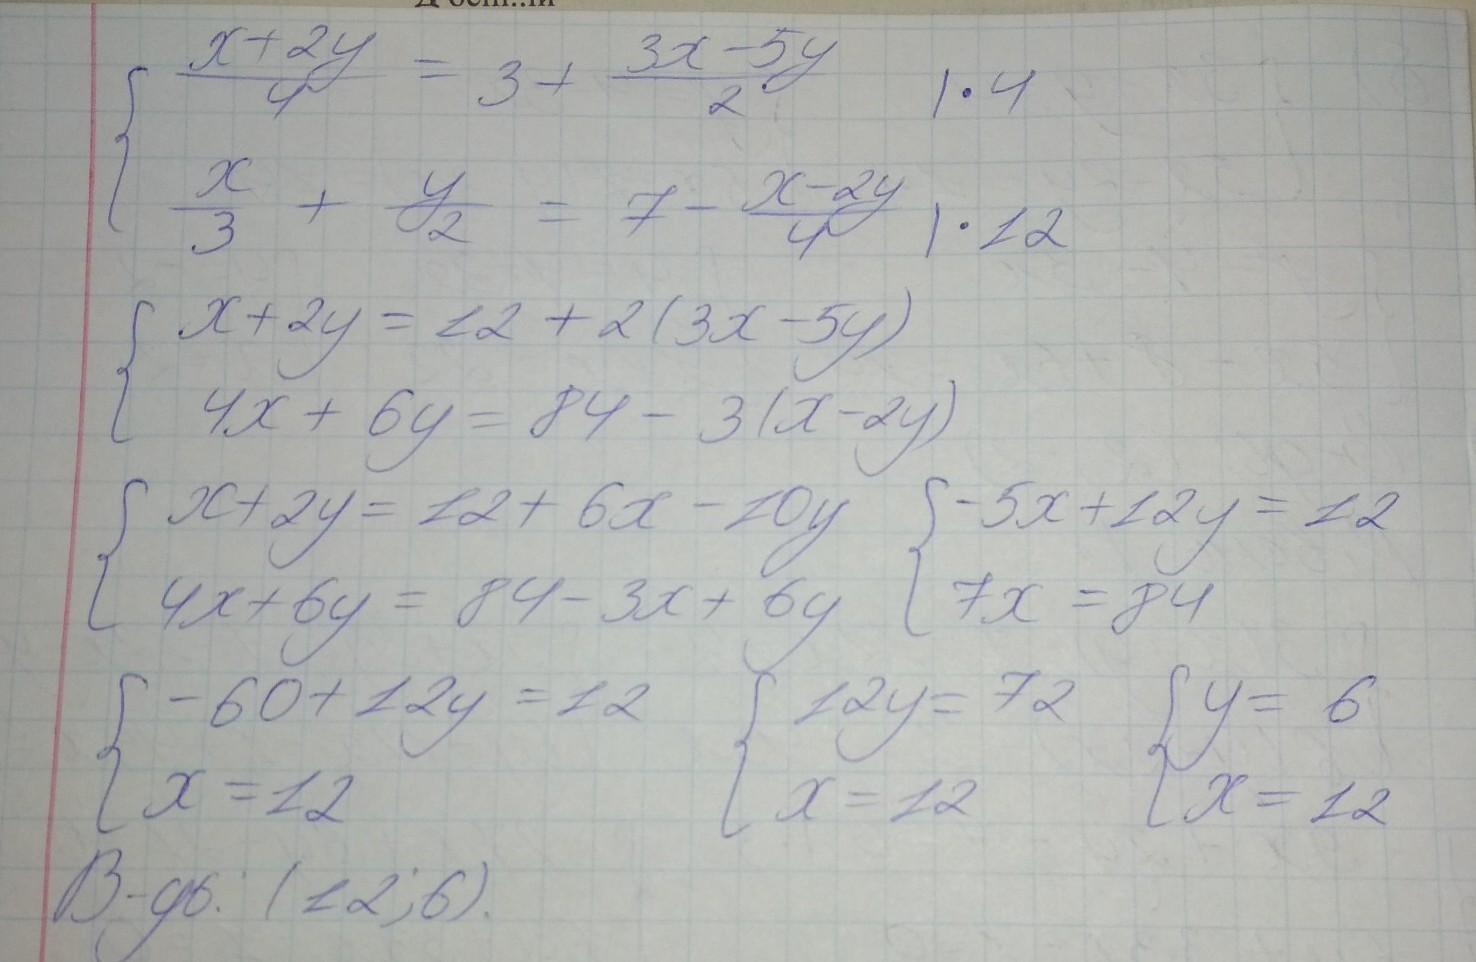 (x+2y)/4 = 3 + (3x-5y)/2 | · 4
x/3 + y/2 = 7 - (x-2y)/4 | · 12
x+2y = 12 + 2(3x-5y)
4x + 6y = 84 - 3(x-2y)
x+2y = 12 + 6x - 10y
4x+6y = 84 - 3x + 6y
-5x+12y = 12
7x = 84
-60 + 12y = 12
x = 12
12y = 72
x = 12
y = 6
x = 12
В-дь: (12;6).